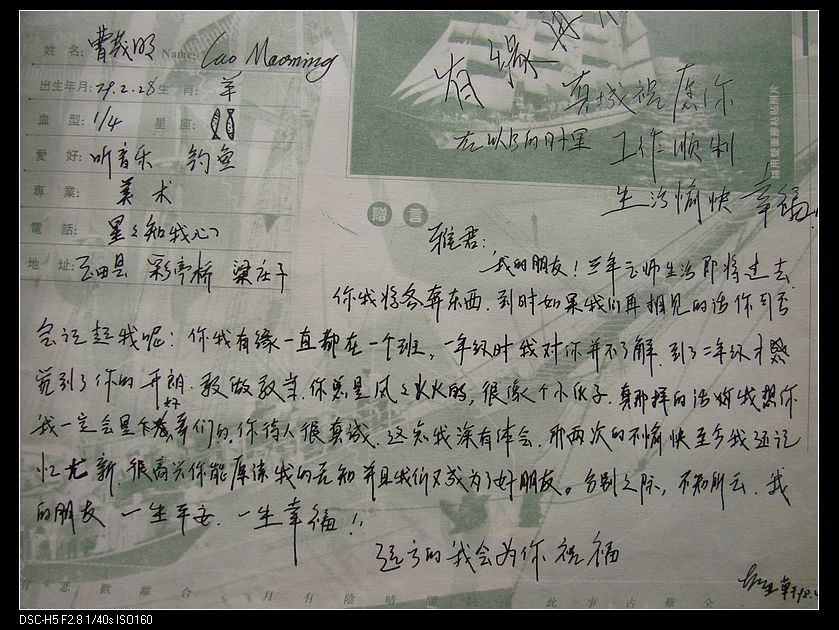 姓 名: 曹茂明 Name: Cao Maoming
出生年月: 79.2.28 生 肖: 羊
血 型: 1/4 星 座:
愛 好: 听音乐 钓鱼
專 業: 美术
電 話: 星星知我心
地 址: 玉田县 彩亭桥 梁庄子
有缘再
真诚祝愿你
在以后的日子里 工作顺利
生活愉快 幸福!
請用雙面膠粘貼照片
贈 言
雅君:
我的朋友!三年云师生活即将过去
你我将各奔东西. 到时如果我们再相见的话你可否
会记起我呢: 你我有缘一直都在一个班。一年级时我对你并不了解. 到了二年级才
觉到了你的开朗. 敢做敢当. 你总是风风火火的, 很像个小伙子. 真那样的话 我想你
我一定会是好 们的。你待人很真诚. 这点我深有体会. 那两次的不愉快至今我还记
忆尤新. 很高兴你能原谅我的无知并且我们又成为了好朋友。分别之际, 不知所云. 我
的朋友 一生平安. 一生幸福!!
远方的我会为你祝福
有 悲 歡 離 合 月 有 陰 晴 圓 缺 此 事 古 難 全
DSC-H5 F2.8 1/40s ISO160